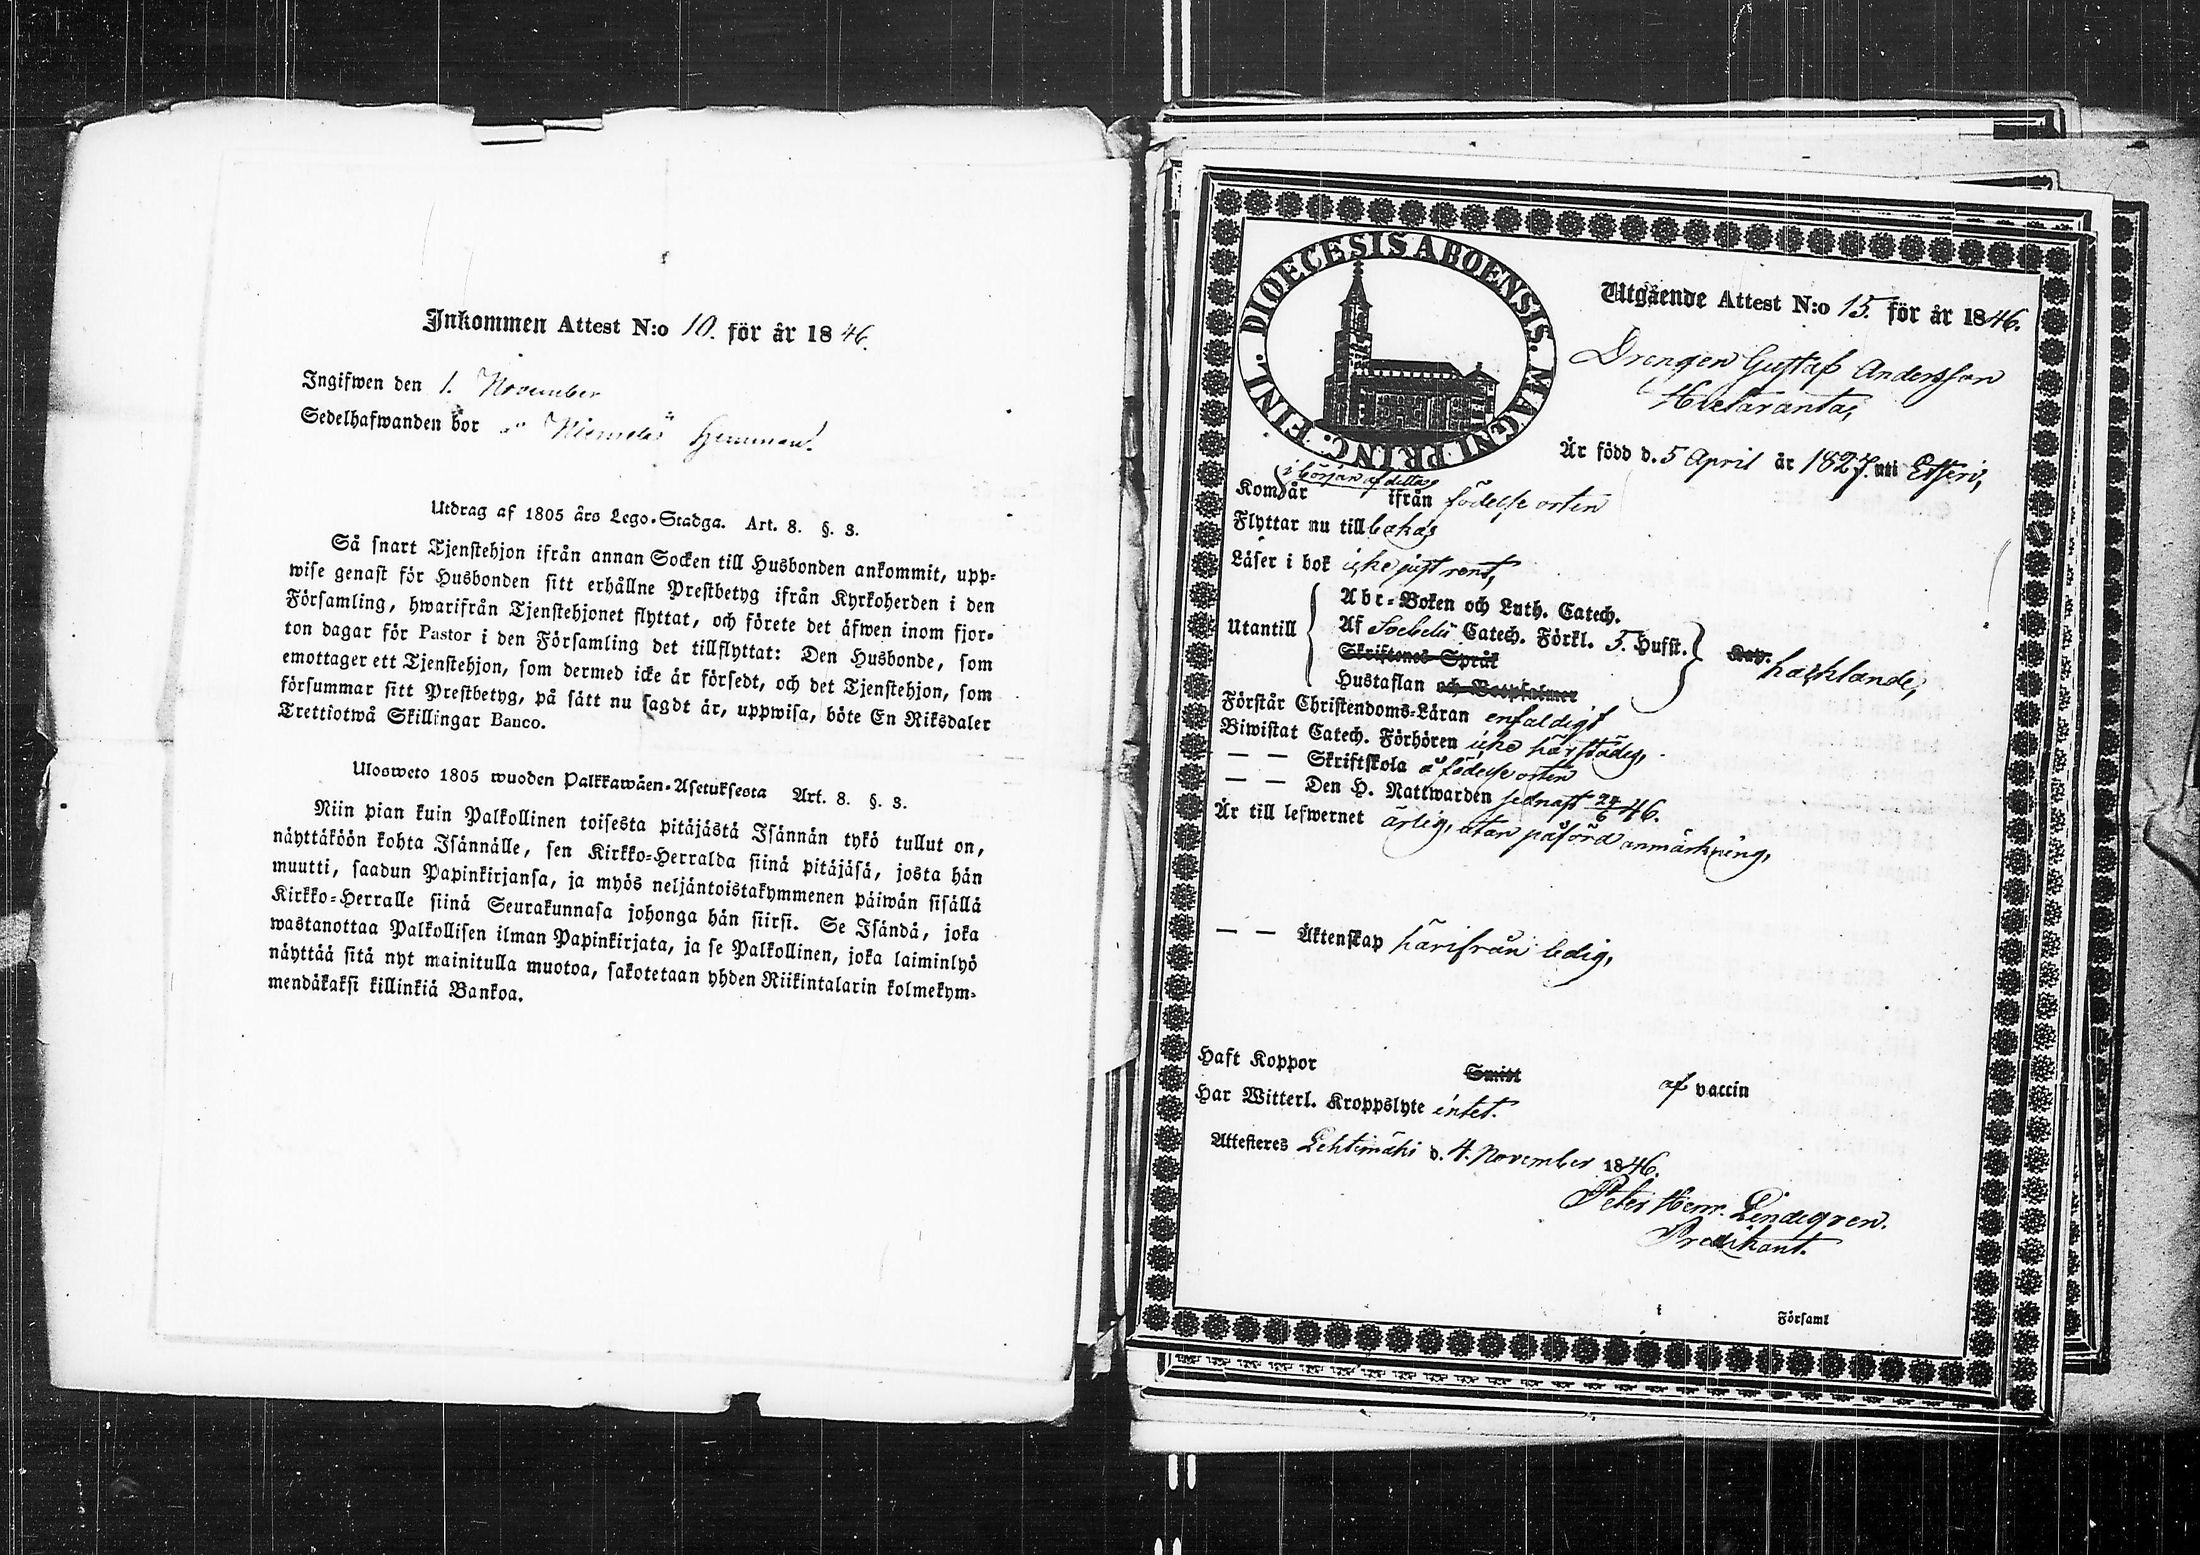 Inkommen Attest N:o 10. för år 1846.
Ingifwen den 1. November
Sedelhafwanden bor å Niemelä Hemman.
Utdrag af 1805 års Lego-Stadga. Art. 8. §. 3.
Så snart Tjenstehjon ifrån annan Socken till Husbonden ankommit, upp-
wise genast för Husbonden sitt erhållne Prestbetyg ifrån Kyrkoherden i den
Församling, hwarifrån Tjenstehjonet flyttat, och förete det äfwen inom fjor-
ton dagar för Pastor i den Församling det tillflyttat: Den Husbonde, som
emottager ett Tjenstehjon, som dermed icke är försedt, och det Tjenstehjon, som
försummar sitt Prestbetyg, på sätt nu sagdt är, uppwisa, böte En Riksdaler
Trettiotwå Skillingar Banco.
Ulosweto 1805 wuoden Palkkawäen-Asetuksesta Art. 8. §. 3.
Niin pian kuin Palkollinen toisesta pitäjästä Isännän tykö tullut on,
näyttäköön kohta Isännälle, sen Kirkko-Herralda siinä pitäjäsä, josta hän
muutti, saadun Papinkirjansa, ja myös neljäntoistakymmenen päiwän sisällä
Kirkko-Herralle siinä Seurakunnasa johonga hän siirsi. Se Isändä, joka
wastanottaa Palkollisen ilman Papinkirjata, ja se Palkollinen, joka laiminlyö
näyttää sitä nyt mainitulla muotoa, sakotetaan yhden Riikintalarin kolmekym-
mendäkaksi killinkiä Bankoa.
DIOECESIS ABOENSIS. MAGNI PRINC. FINL.
Utgående Attest N:o 15. för år 1846.
Drengen Gustaf Andersson
Hietaranta,
Är född d. 5 April år 1827. uti Etseri,
i början af detta
Kom år ifrån födelse orten
Flyttar nu tillbakas
Läser i bok icke just rent,
Abc-Boken och Luth. Catech.
Utantill Af Soebelii Catech. Förkl. 5. Hufst. Kap. hacklande,
Skriftenes Språk
Hustaflan och Botpsalmer
Förstår Christendoms-Läran enfaldigt
Biwistat Catech. Förhören icke härstädes,
— — Skriftskola å födelse orten
— — Den H. Nattwarden sednast 24/6 46.
Är till lefwernet ärlig, utan påförd anmärkning,
— — Äktenskap härifrån ledig,
Haft Koppor Smitt af vaccin
Har Witterl. Kroppslyte intet.
Attesteres Lehtimäki d. 4. November 1846.
Peter Henr. Lindegren.
Predikant.
i Församl